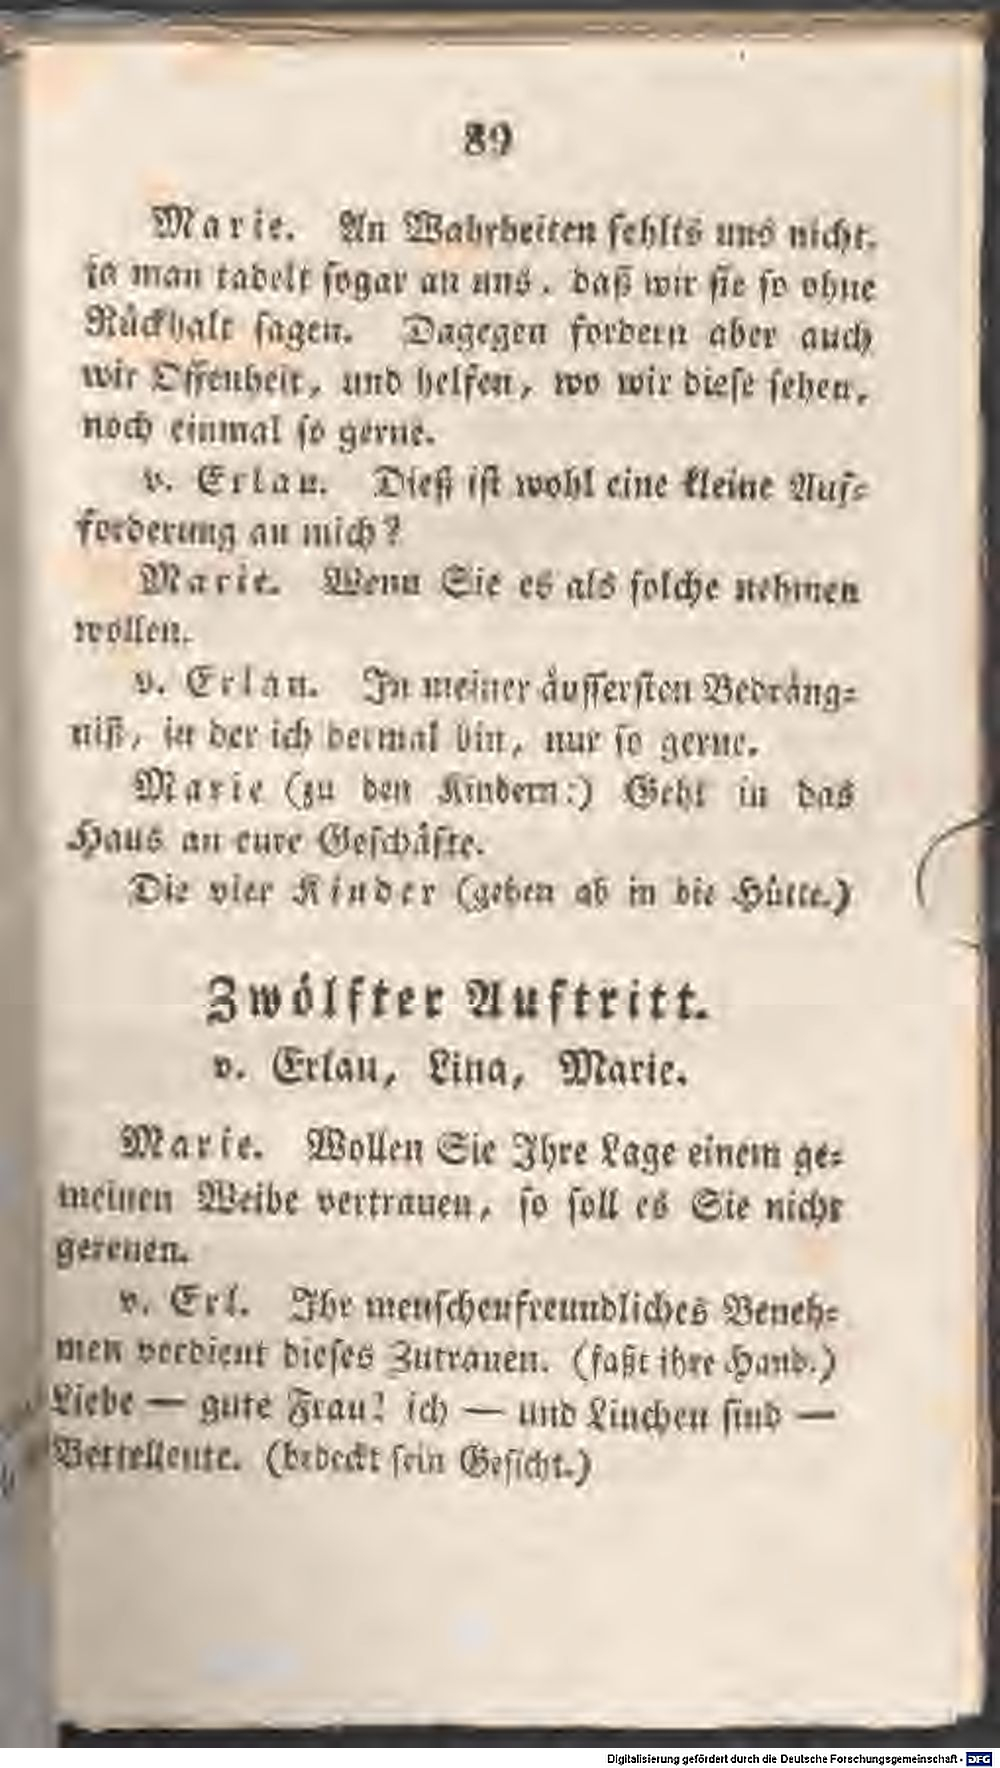 89
Marie. An Wahrheiten fehlts uns nicht,
ja man tadelt sogar an uns, daß wir sie so ohne
Rückhalt sagen. Dagegen fordern aber auch
wir Offenheit, und helfen, wo wir diese sehen,
noch einmal so gerne.
v. Erlau. Dieß ist wohl eine kleine Auf-
forderung an mich?
Marie. Wenn Sie es als solche nehmen
wollen.
v. Erlau. In meiner äussersten Bedräng-
niß, in der ich dermal bin, nur so gerne.
Marie (zu den Kindern:) Geht in das
Haus an eure Geschäfte.
Die vier Kinder (gehen ab in die Hütte.)
Zwölfter Auftritt.
v. Erlau, Lina, Marie.
Marie. Wollen Sie Ihre Lage einem ge-
meinen Weibe vertrauen, so soll es Sie nicht
gereuen.
v. Erl. Ihr menschenfreundliches Beneh-
men verdient dieses Zutrauen. (faßt ihre Hand.)
Liebe — gute Frau! ich — und Linchen sind —
Bettelleute. (bedeckt sein Gesicht.)
Digitalisierung gefördert durch die Deutsche Forschungsgemeinschaft - DFG